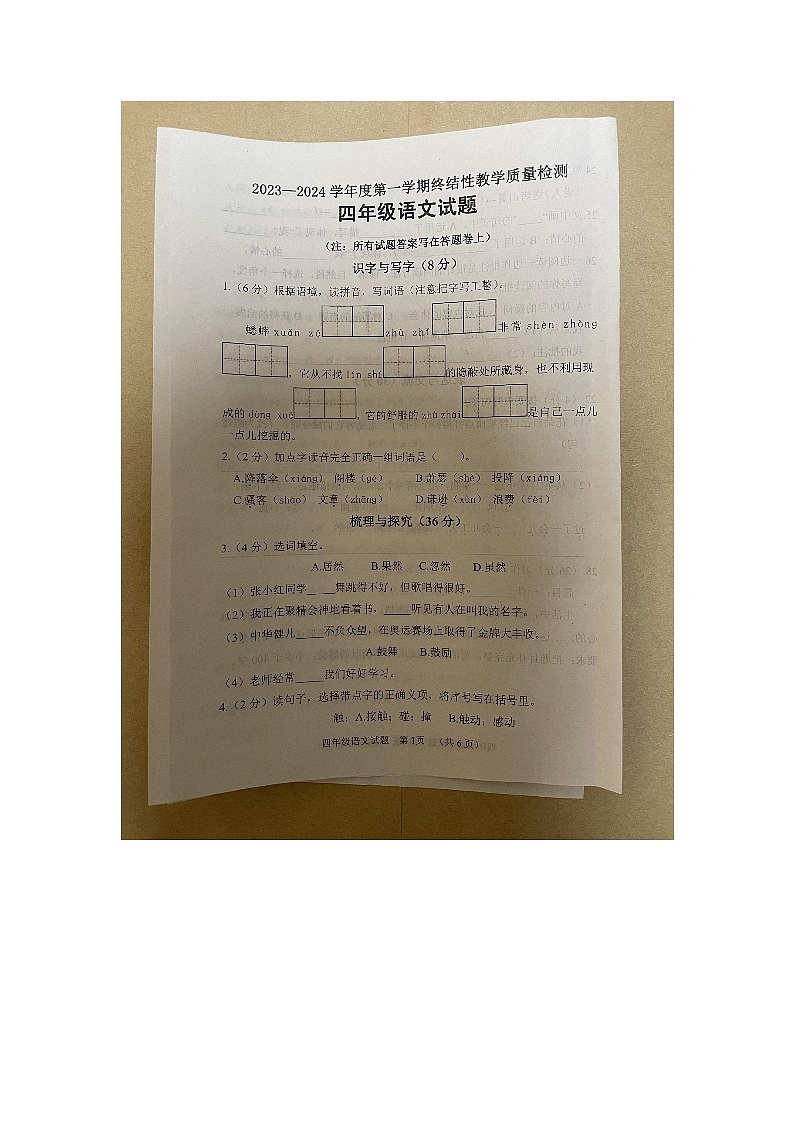 2023—2024 学年度第一学期终结性教学质量检测
四年级语文试题
(注：所有试题答案写在答题卷上)
识字与写字（8 分）
1.（6 分）根据语境，读拼音，写词语（注意把字写工整）。
蟋蟀 xuǎn zé zhù zhǐ 非常 shèn zhòng
，它从不找 lín shí 的隐蔽处所藏身，也不利用现
成的 dòng xué ，它的舒服的 zhù zhái 是自己一点儿
一点儿挖掘的。
2.（2 分）加点字读音完全正确一组词语是（ ）。
A.降落伞（xiáng） 阁楼（gé） B.萧瑟（shè） 投降（xiáng）
C.骚客（shāo） 文章（zhāng） D.谦逊（xùn） 浪费（fèi）
梳理与探究（36 分）
3.（4 分）选词填空。
A.居然 B.果然 C.忽然 D.虽然
（1）张小红同学____舞跳得不好，但歌唱得很好。
（2）我正在聚精会神地看着书，____听见有人在叫我的名字。
（3）中华健儿____不负众望，在奥运赛场上取得了金牌大丰收。
A.鼓舞 B.鼓励
（4）老师经常____我们好好学习。
4.（2 分）读句子，选择带点字的正确义项，将序号写在括号里。
触：A.接触；碰；撞 B.触动；感动
四年级语文试题 第 1页 （共 6 页）